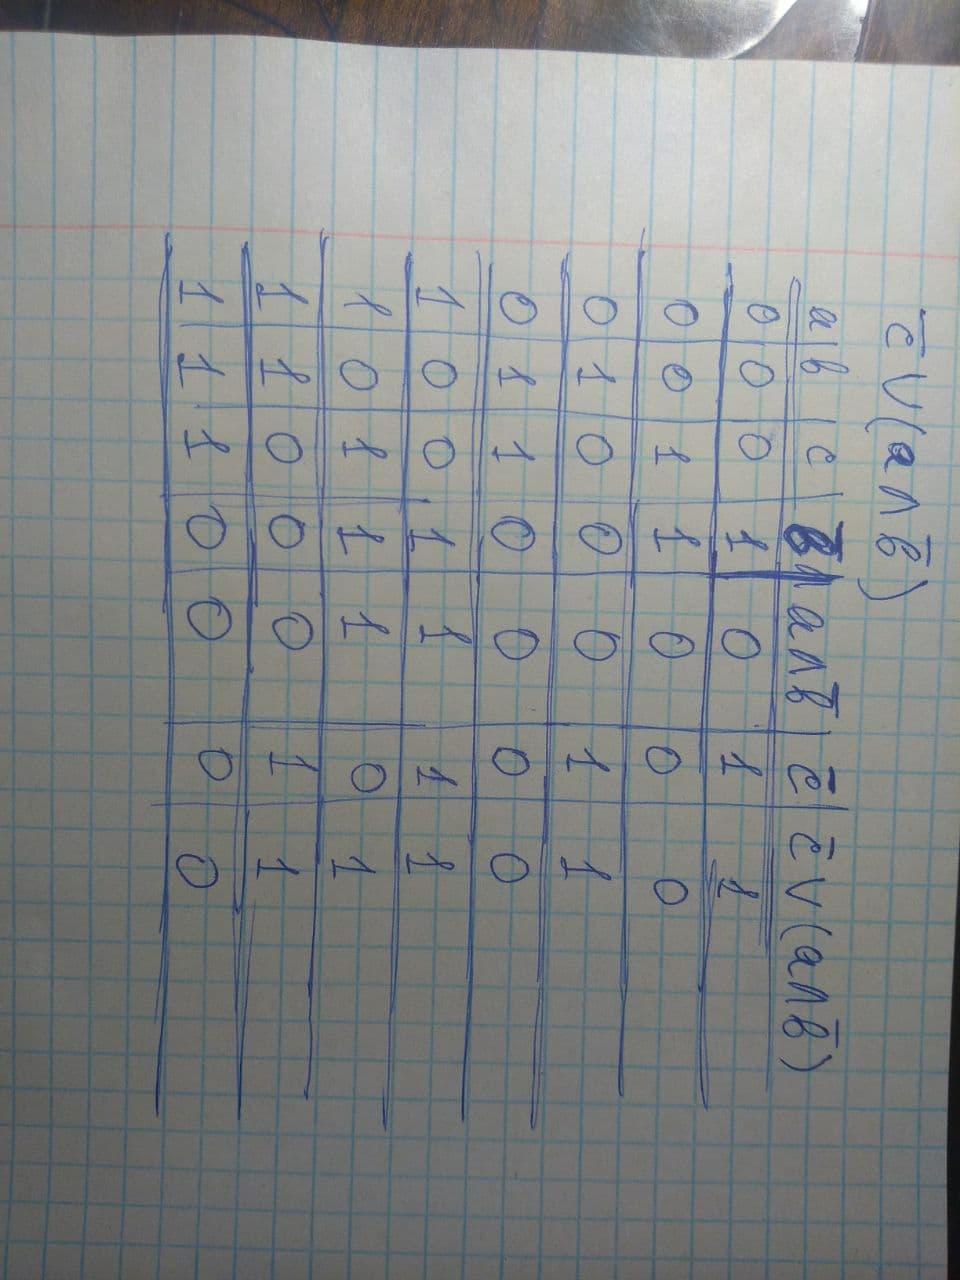 c̄ V (a ∧ b̄)
a | b | c | b̄ | a∧b̄ | c̄ | c̄ V (a∧b̄)
0 0 0 1 0 1 1
0 0 1 1 0 0 0
0 1 0 0 0 1 1
0 1 1 0 0 0 0
1 0 0 1 1 1 1
1 0 1 1 1 0 1
1 1 0 0 0 1 1
1 1 1 0 0 0 0